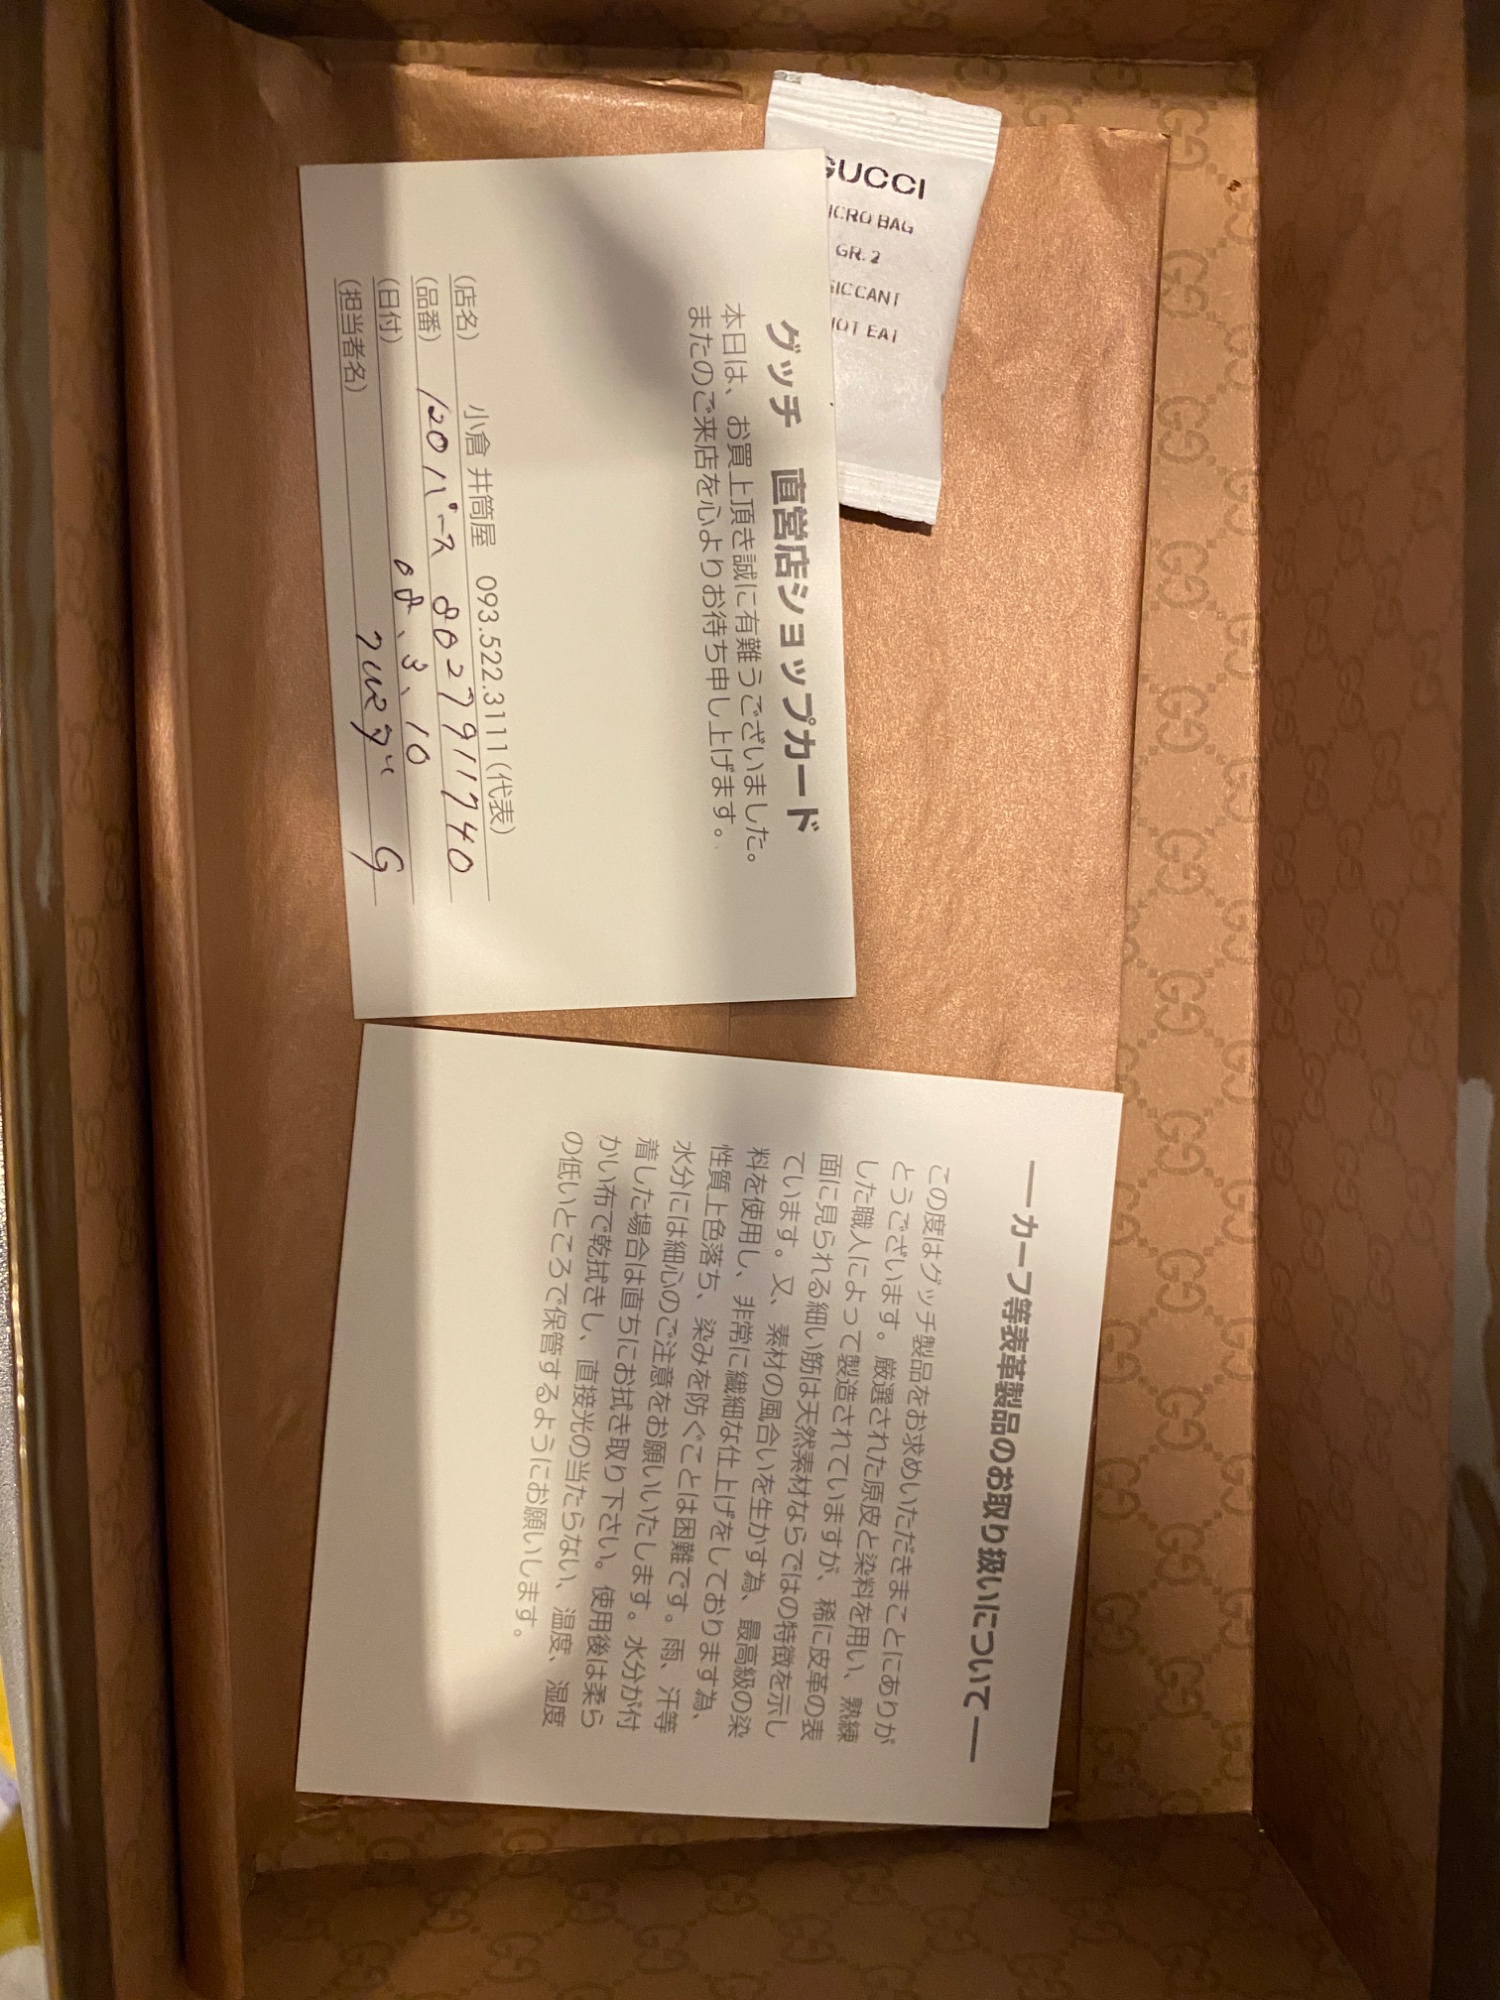 GUCCI
ICRO BAG
GR. 2
SICCANT
NOT EAT
グッチ 直営店ショップカード
本日は、お買上頂き誠に有難うございました。
またのご来店を心よりお待ち申し上げます。
(店名) 小倉 井筒屋 093.522.3111(代表)
(品番) 120パース 8027911740
(日付) 08、3、10
(担当者名)
―カーフ等表革製品のお取り扱いについて―
この度はグッチ製品をお求めいただきまことにありが
とうございます。厳選された原皮と染料を用い、熟練
した職人によって製造されていますが、稀に皮革の表
面に見られる細い筋は天然素材ならではの特徴を示し
ています。又、素材の風合いを生かす為、最高級の染
料を使用し、非常に繊細な仕上げをしております為、
性質上色落ち、染みを防ぐことは困難です。雨、汗等
水分には細心のご注意をお願いいたします。水分が付
着した場合は直ちにお拭き取り下さい。使用後は柔ら
かい布で乾拭きし、直接光の当たらない、温度、湿度
の低いところで保管するようにお願いします。